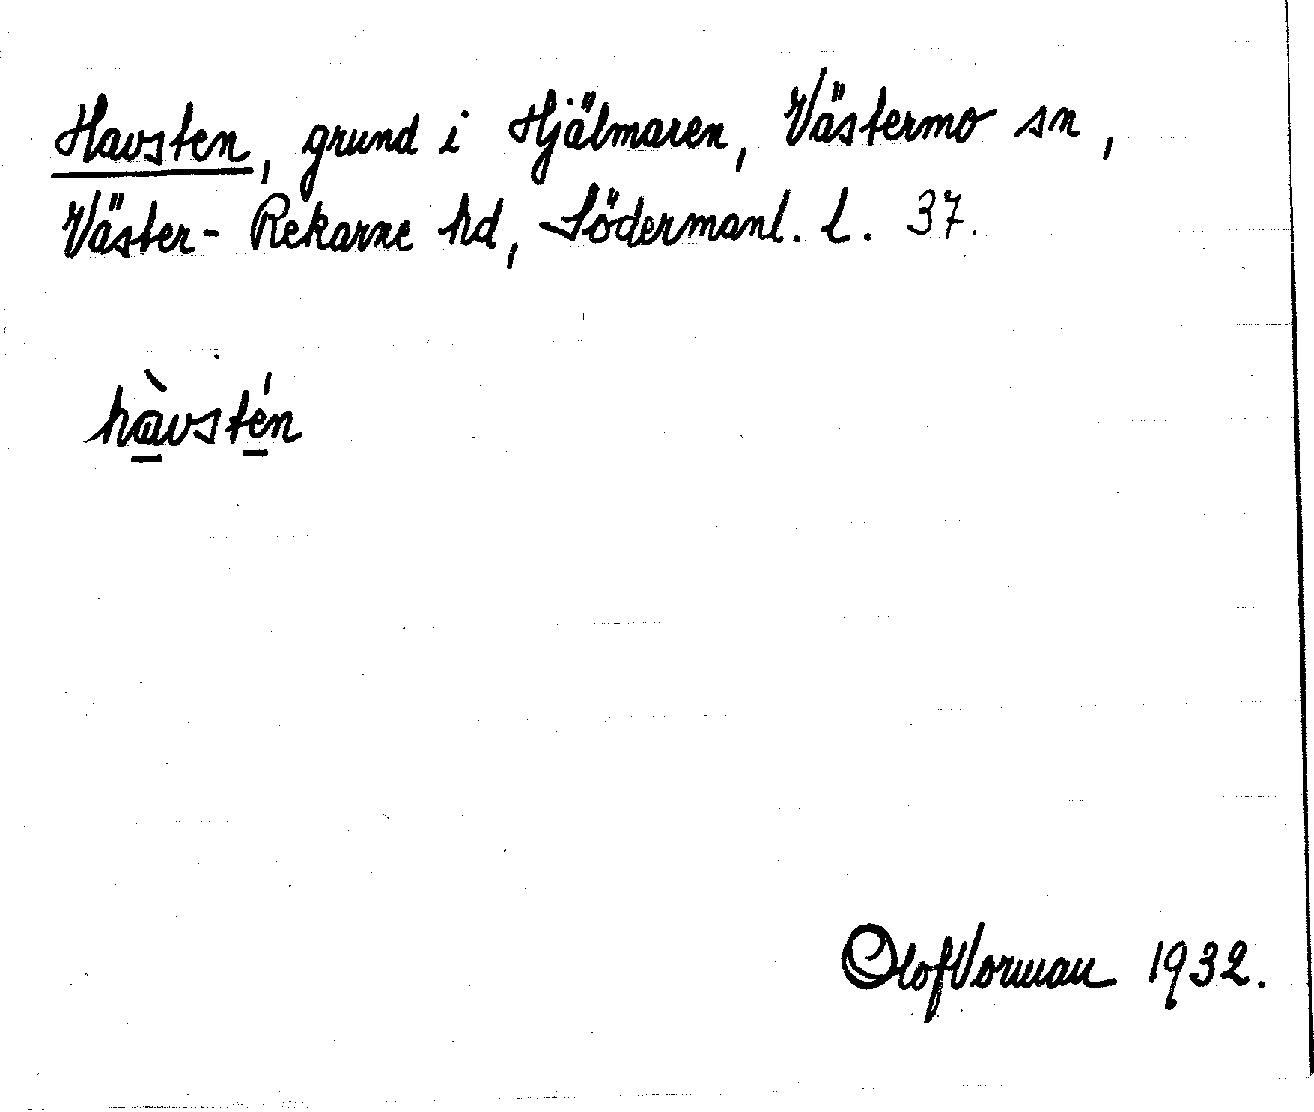 Havsten, grund i Hjälmaren, Västermo sn,
Väster-Rekarne hd, Södermanl. l. 37.
hàvstén
Olof Vorman 1932.